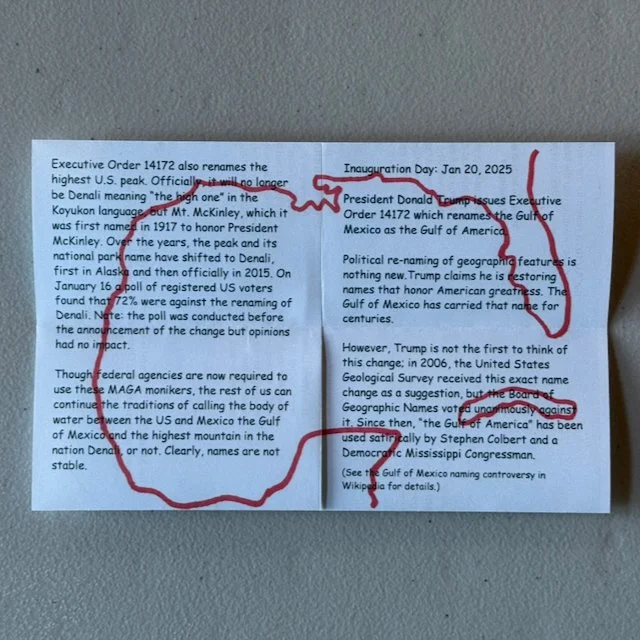 Executive Order 14172 also renames the
highest U.S. peak. Officially, it will no longer
be Denali meaning "the high one" in the
Koyukon language, but Mt. McKinley, which it
was first named in 1917 to honor President
McKinley. Over the years, the peak and its
national park name have shifted to Denali,
first in Alaska and then officially in 2015. On
January 16 a poll of registered US voters
found that 72% were against the renaming of
Denali. Note: the poll was conducted before
the announcement of the change but opinions
had no impact.
Though federal agencies are now required to
use these MAGA monikers, the rest of us can
continue the traditions of calling the body of
water between the US and Mexico the Gulf
of Mexico and the highest mountain in the
nation Denali, or not. Clearly, names are not
stable.
Inauguration Day: Jan 20, 2025
President Donald Trump issues Executive
Order 14172 which renames the Gulf of
Mexico as the Gulf of America.
Political re-naming of geographic features is
nothing new.Trump claims he is restoring
names that honor American greatness. The
Gulf of Mexico has carried that name for
centuries.
However, Trump is not the first to think of
this change; in 2006, the United States
Geological Survey received this exact name
change as a suggestion, but the Board of
Geographic Names voted unanimously against
it. Since then, "the Gulf of America" has been
used satirically by Stephen Colbert and a
Democratic Mississippi Congressman.
(See the Gulf of Mexico naming controversy in
Wikipedia for details.)